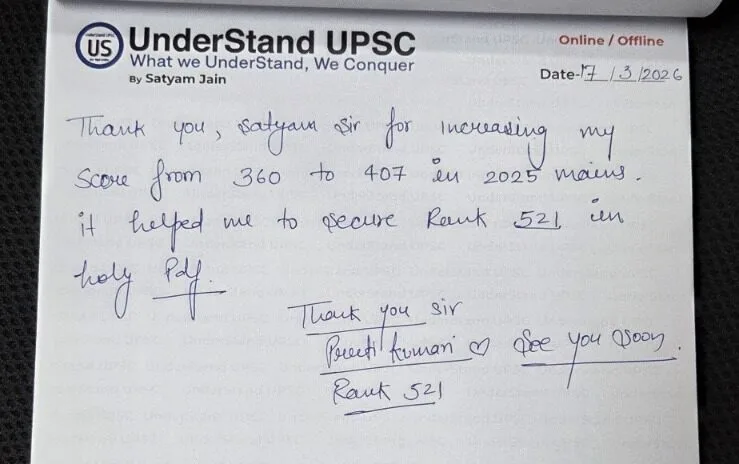 US
UnderStand UPSC
What we UnderStand, We Conquer
By Satyam Jain
Online / Offline
Date-17/3/2026
Thank you, Satyam Sir for increasing my
Score from 360 to 407 in 2025 mains.
it helped me to secure Rank 521 in
holy Pdf.
Thank you sir
Preeti Kumari ♡ See you soon.
Rank 521